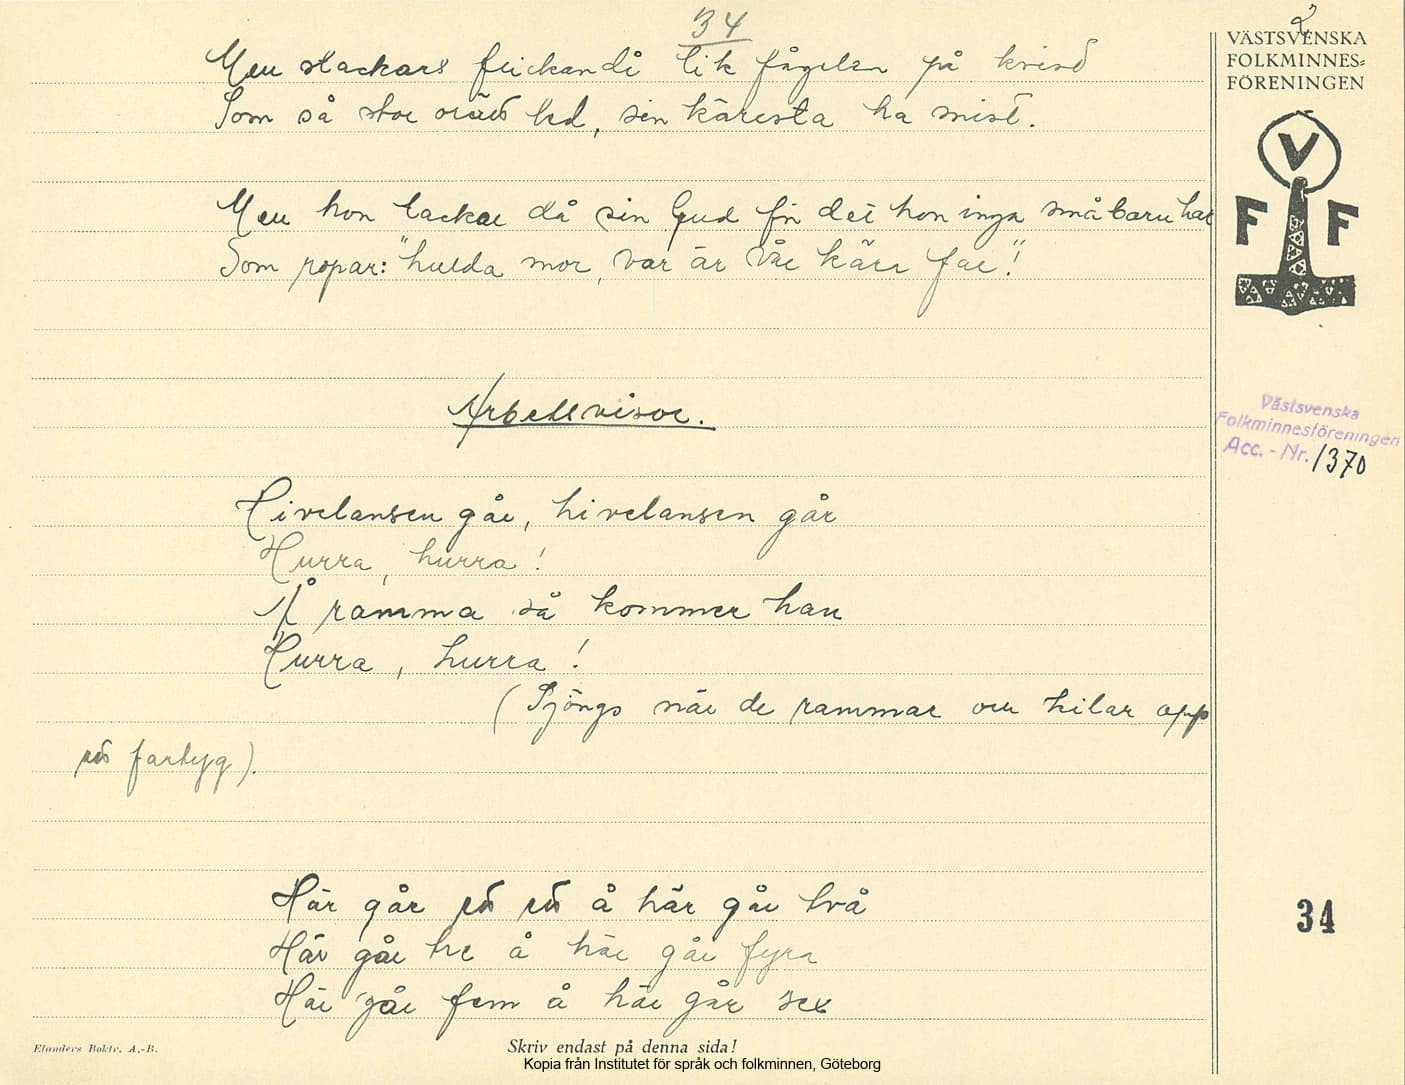 34
2
Men stackars flickan då lik fågelen på kvist
Som så stor oräd led, sin käresta ha mist.
Men hon tackar då sin Gud för det hon inga små barn har
Som ropar: "hulda mor, var är vår kära far!"
Arbetsvisor.
Hivelansen går, hivelansen går
Hurra, hurra!
Å ramma så kommer han
Hurra, hurra!
(Sjöngs när de rammar och kilar opp
på fartyg).
Här går på på å här går två
Här går tre å här går fyra
Här går fem å här går sex
VÄSTSVENSKA
FOLKMINNES=
FÖRENINGEN
V
F F
Västsvenska
Folkminnesföreningen
Acc. - Nr. 1370
34
Elanders Boktr. A.-B.
Skriv endast på denna sida!
Kopia från Institutet för språk och folkminnen, Göteborg